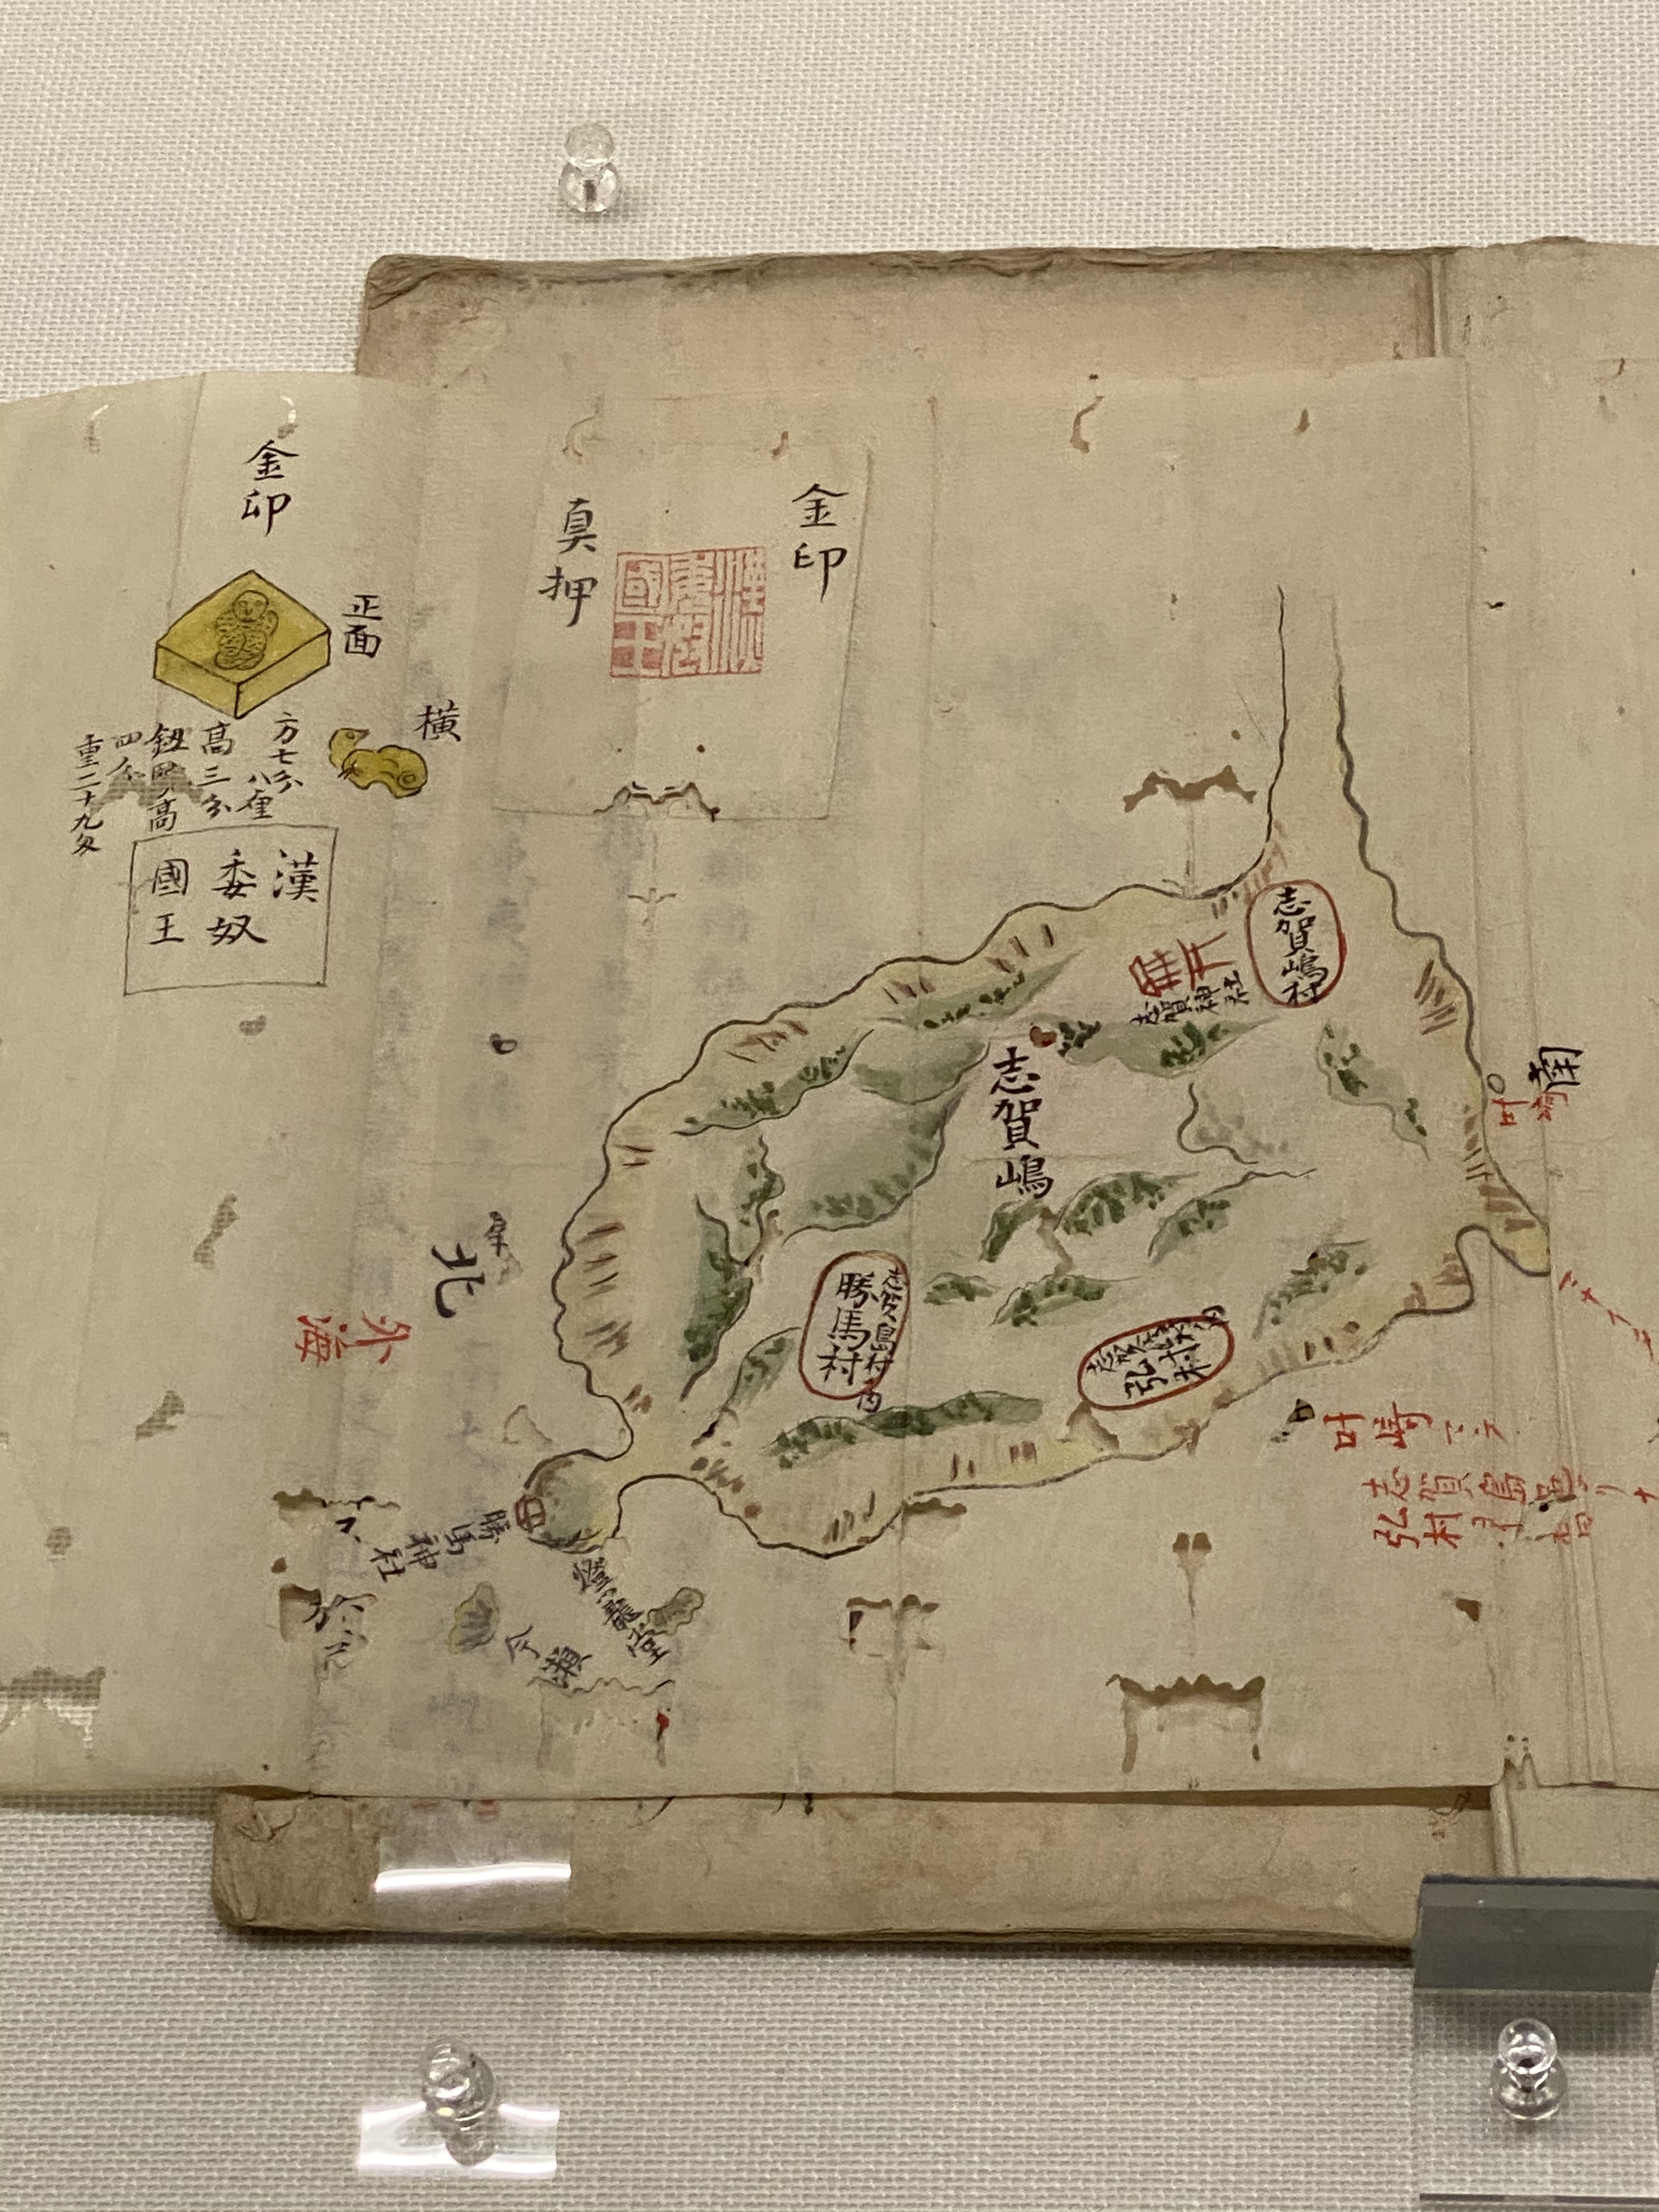 金印
真押
漢
委奴
國王
金印
正面
横
方七分
八厘
高三分
鈕
高
四分
重二十九匁
漢
委奴
國王
志賀嶋村
志賀神社
志賀嶋
南
叶崎
北
外海
勝馬村
志賀島村ノ内
弘村
叶崎マテ
志賀島
弘村
勝馬神社
今瀬